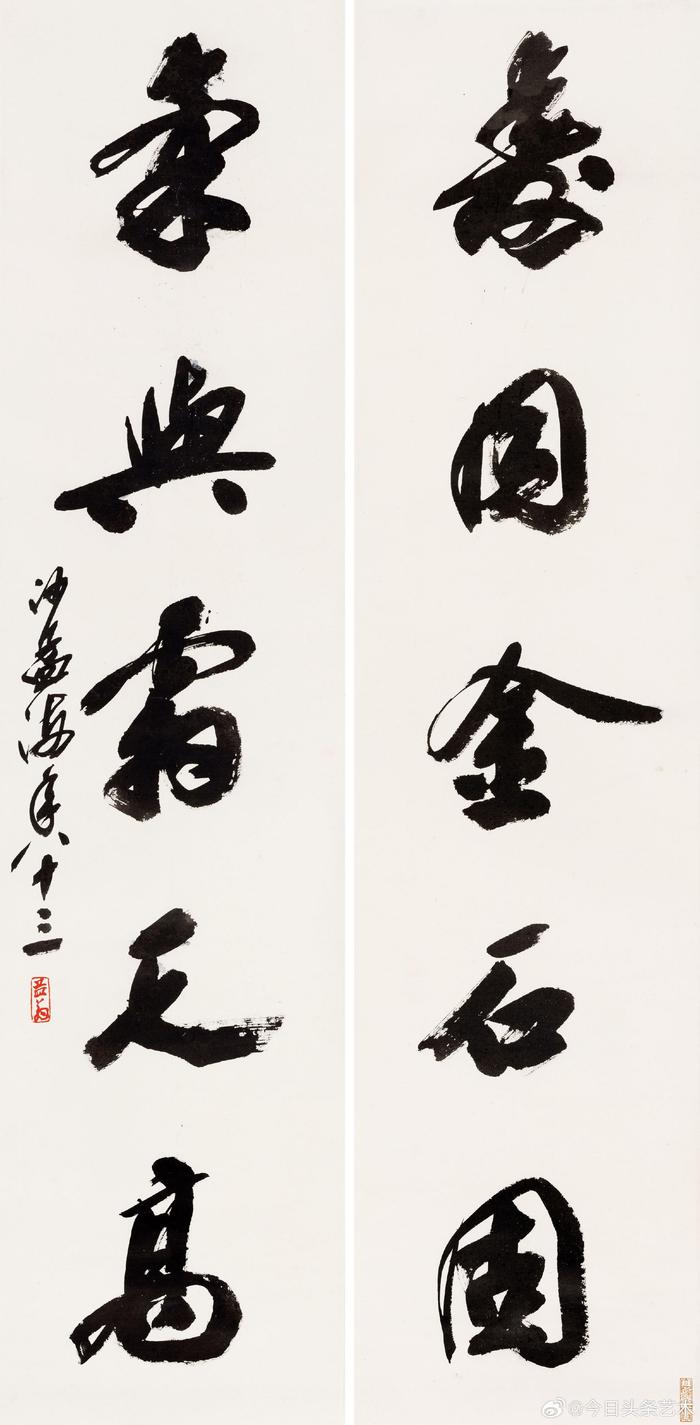 壽同金石固
氣與霜天高
沙孟海年八十三
@今日头条艺术